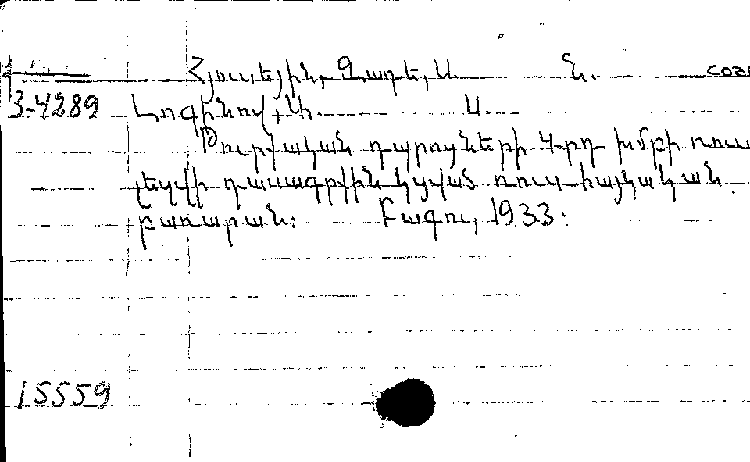 Հյուսեյին, Զադե, Ա. Ն. сост
3-4289 Լոգինով, Ն. Ա.
Թուրքական դպրոցների 4-րդ խմբի ռուս
լեզվի դասագրքին կցված ռուս-հայկական
բառարան: Բագու, 1933:
15559